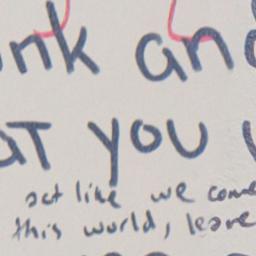 nk and
at you
act like we come
this world, leave